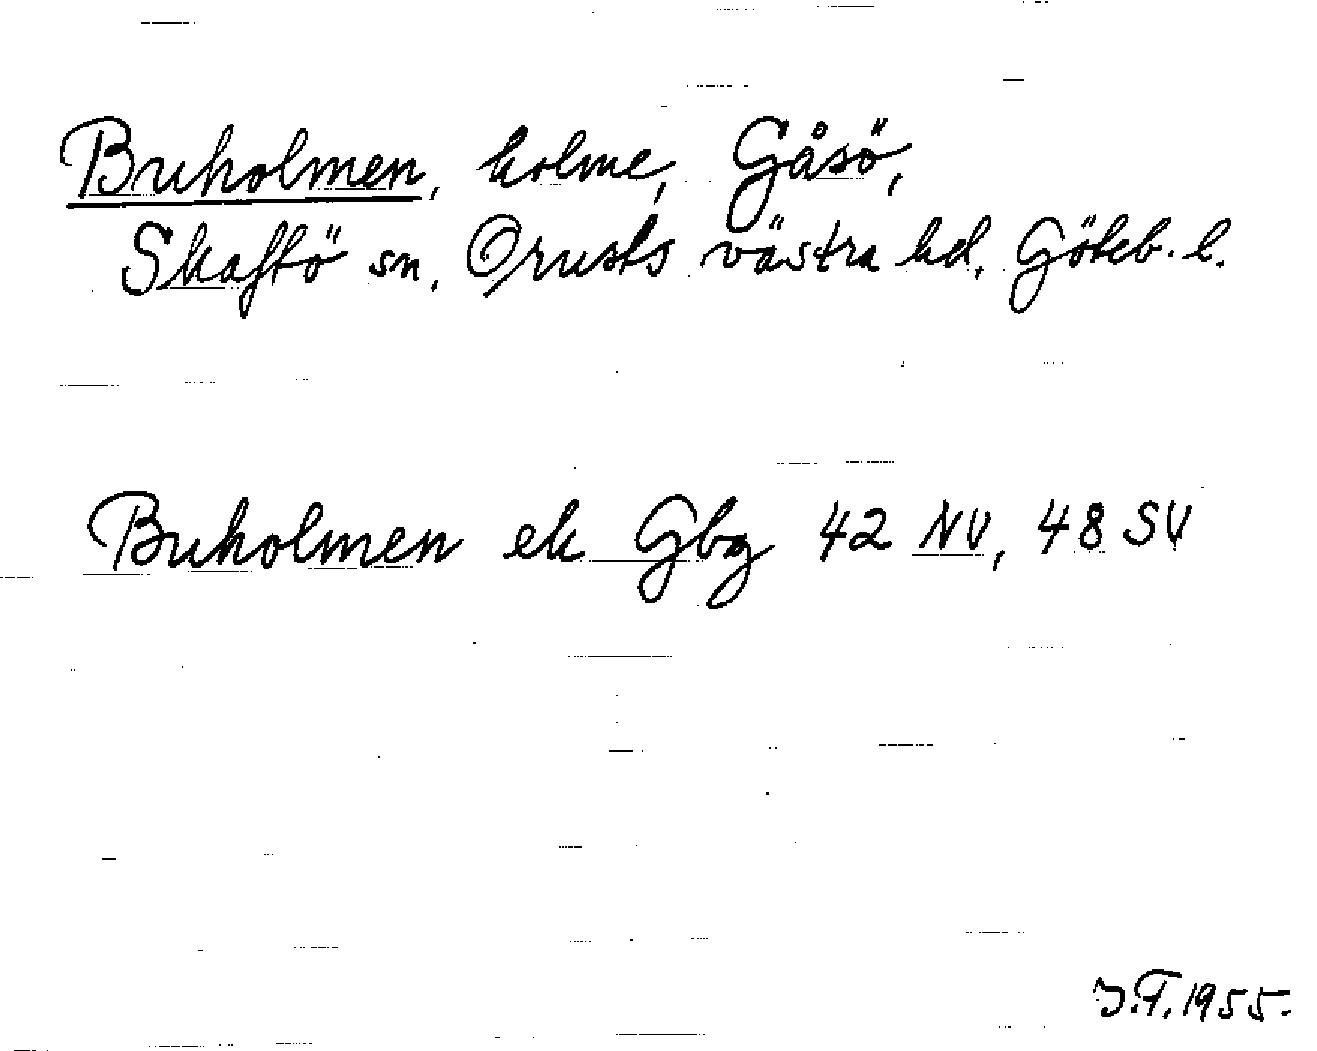 Buholmen, holme, Gåsö,
Skaftö sn, Orusts västra hd, Göteb. l.
Buholmen ek Gbg 42 NV, 48 SV
J.T. 1955.